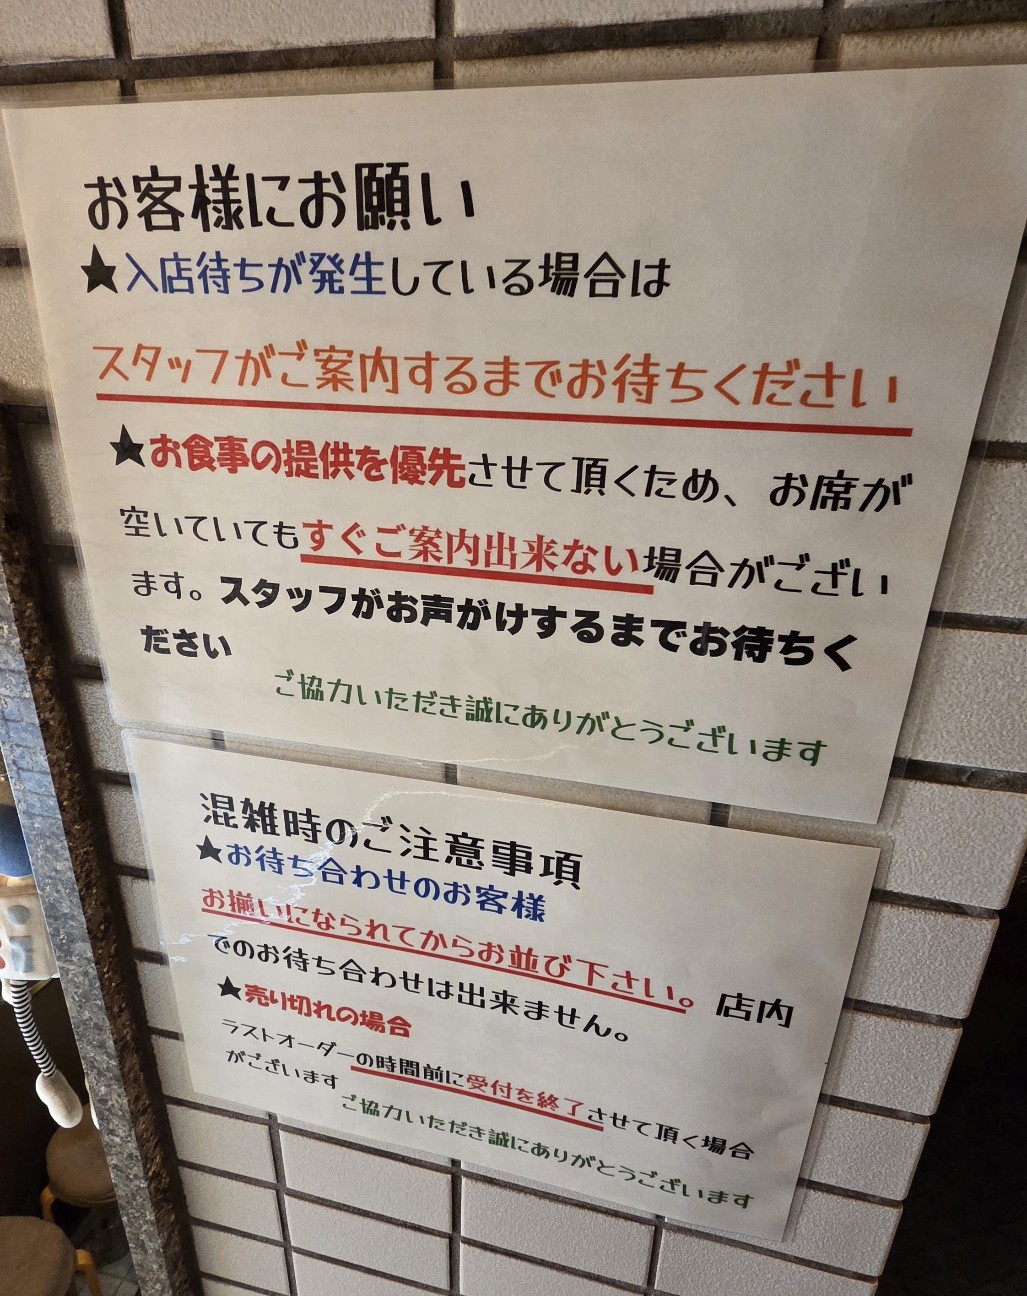 お客様にお願い
★入店待ちが発生している場合は
スタッフがご案内するまでお待ちください
★お食事の提供を優先させて頂くため、お席が
空いていてもすぐご案内出来ない場合がござい
ます。スタッフがお声がけするまでお待ちく
ださい
ご協力いただき誠にありがとうございます
混雑時のご注意事項
★お待ち合わせのお客様
お揃いになられてからお並び下さい。店内
でのお待ち合わせは出来ません。
★売り切れの場合
ラストオーダーの時間前に受付を終了させて頂く場合
がございます
ご協力いただき誠にありがとうございます